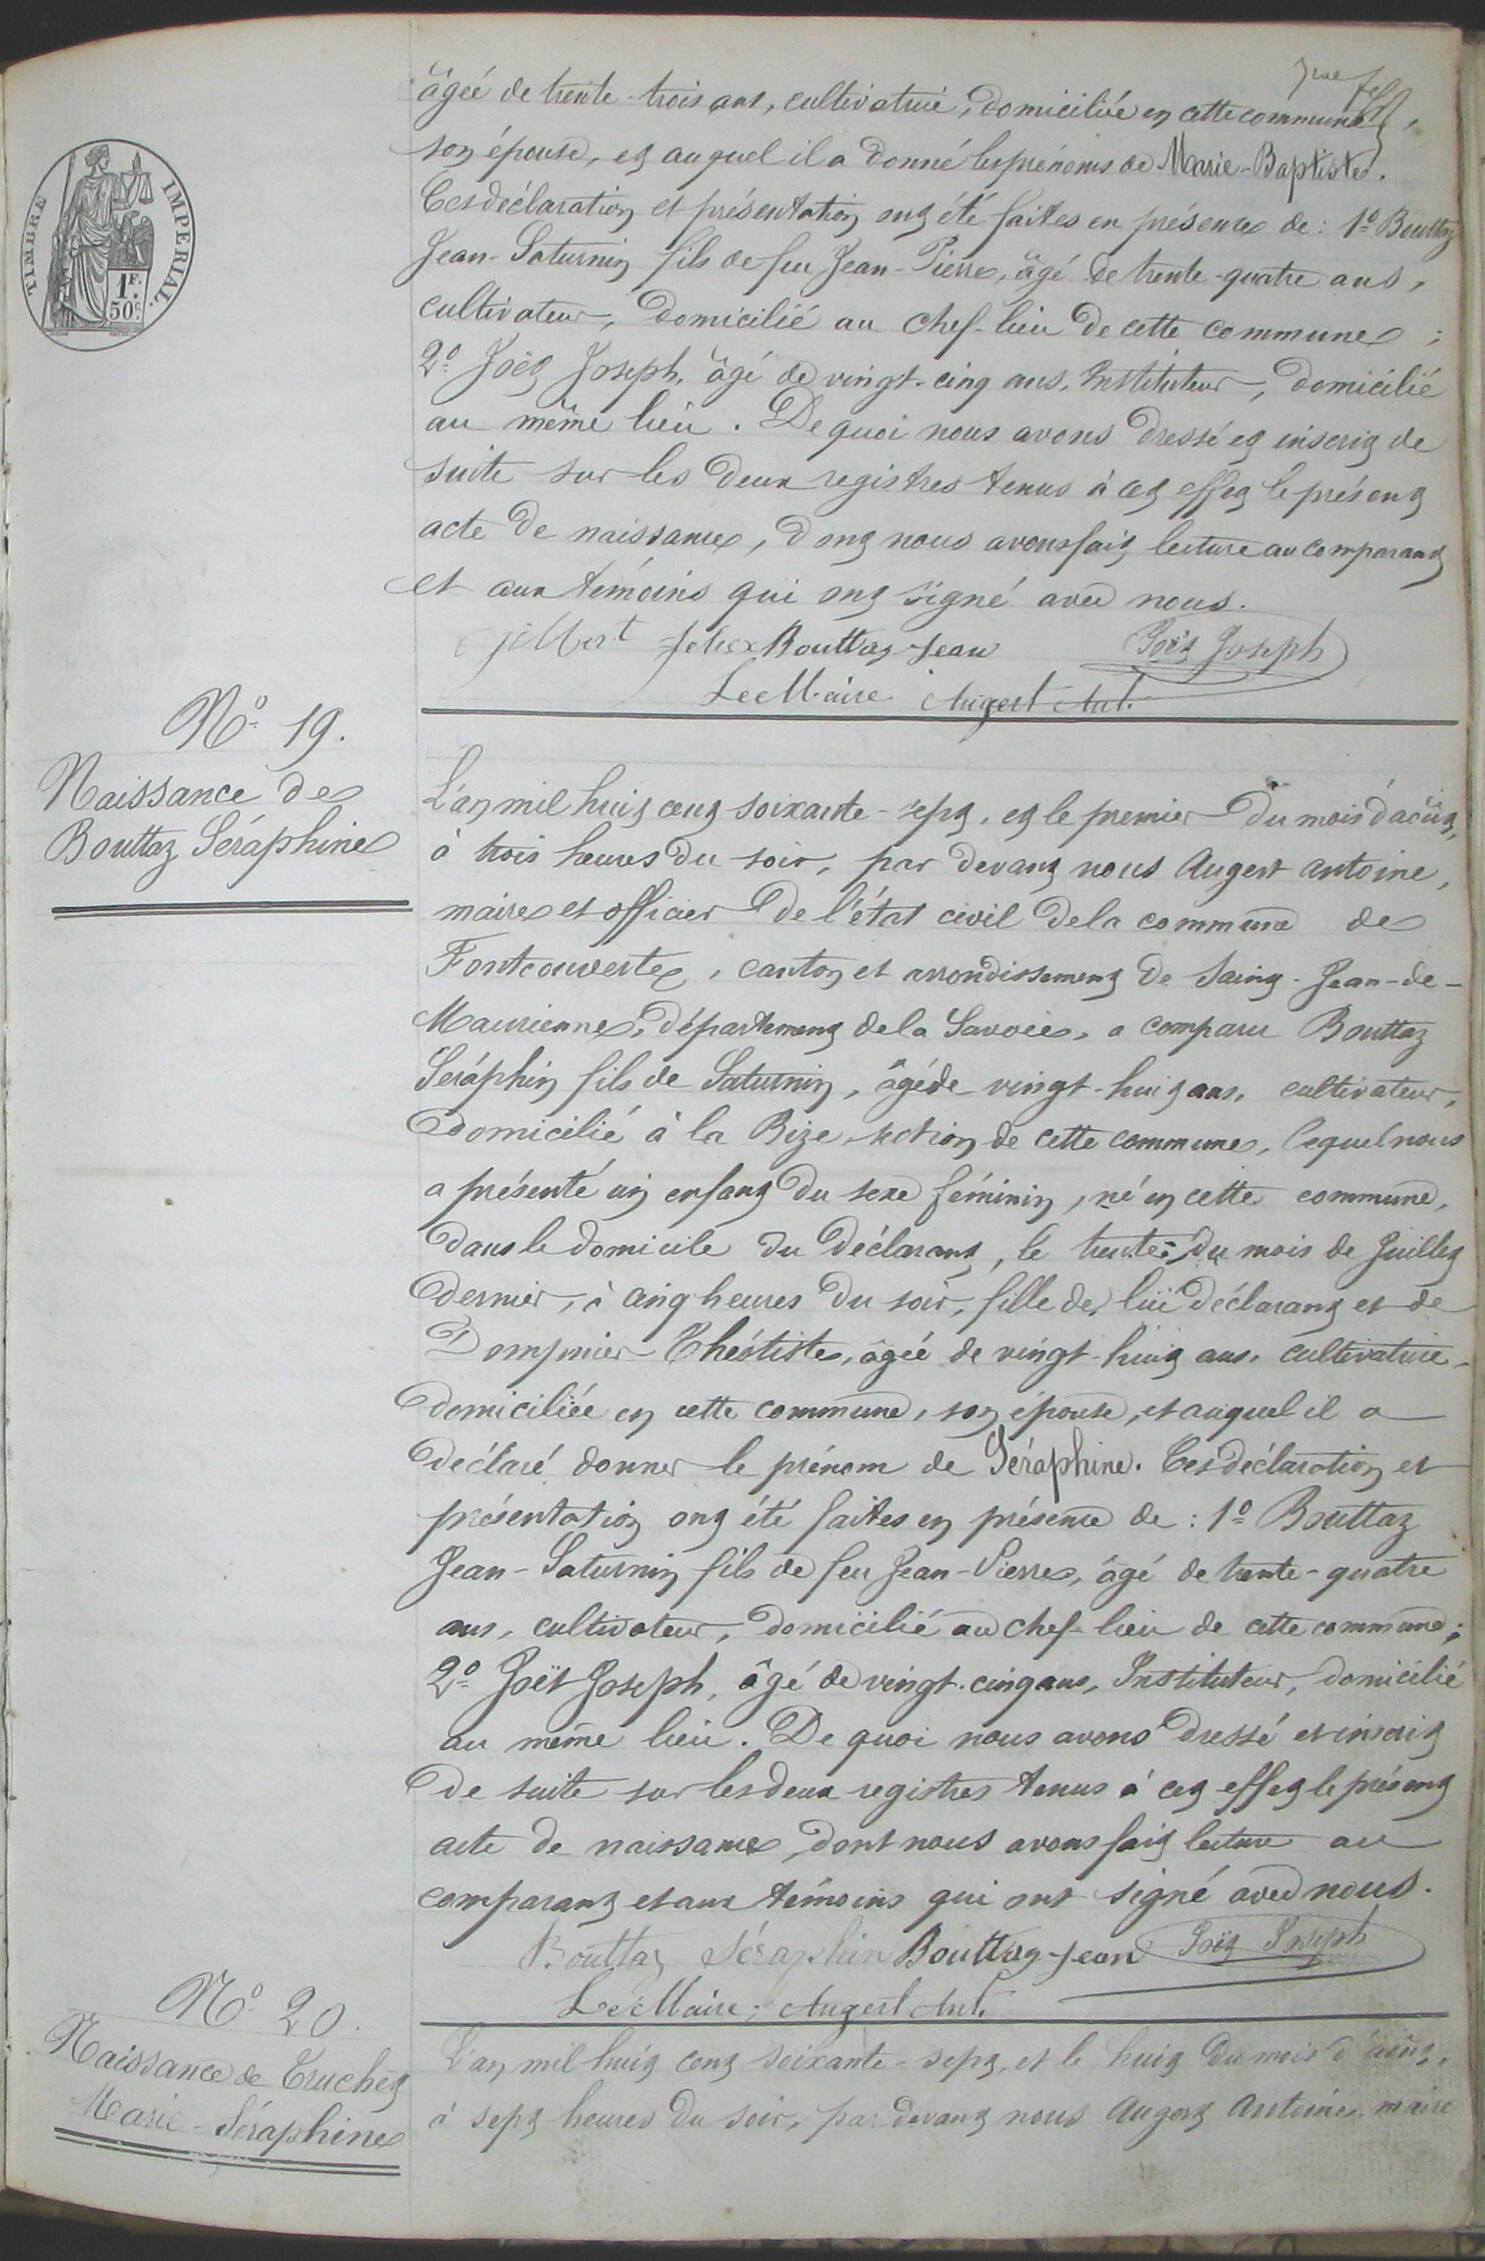 âgée de trente-trois ans, cultivatrice, domiciliée en cette commune,
son épouse, et auquel il a donné les prénoms de Marie-Baptiste.
Ces déclaration et présentation ont été faites en présence de : 1º Bouttaz
Jean-Saturnin fils de feu Jean-Pierre, âgé de trente-quatre ans,
cultivateur, domicilié au chef-lieu de cette commune ;
2º Joët Joseph, âgé de vingt-cinq ans, Instituteur, domicilié
au même lieu. De quoi nous avons dressé et inscrit de
suite sur les deux registres tenus à cet effet le présent
acte de naissance, dont nous avons fait lecture au comparant
et aux témoins qui ont signé avec nous.
Gilbert felix Bouttaz Jean Joët Joseph
Le Maire Augert Ant.
TIMBRE IMPERIAL
1F.
50c.
Nº 19.
Naissance de
Bouttaz Séraphine
L'an mil huit cent soixante-sept, et le premier du mois d'août,
à trois heures du soir, par devant nous Augert antoine,
maire et officier de l'état civil de la commune de
Fontcouverte, canton et arrondissement de Saint-Jean-de-
Maurienne, département de la Savoie, a comparu Bouttaz
Séraphin fils de Saturnin, âgé de vingt-huit ans, cultivateur,
domicilié à la Rize section de cette commune, lequel nous
a présenté un enfant du sexe féminin, né en cette commune,
dans le domicile du déclarant, le trente du mois de Juillet
dernier, à cinq heures du soir, fille de lui déclarant et de
Dompnier Théotiste, âgée de vingt-huit ans, cultivatrice,
domiciliée en cette commune, son épouse, et auquel il a
déclaré donner le prénom de Séraphine. Ces déclaration et
présentation ont été faites en présence de : 1º Bouttaz
Jean-Saturnin fils de feu Jean-Pierre, âgé de trente-quatre
ans, cultivateur, domicilié au chef-lieu de cette commune ;
2º Joët Joseph, âgé de vingt-cinq ans, Instituteur, domicilié
au même lieu. De quoi nous avons dressé et inscrit
de suite sur les deux registres tenus à cet effet le présent
acte de naissance, dont nous avons fait lecture au
comparant et aux témoins qui ont signé avec nous.
Bouttaz Séraphin Bouttaz Jean Joët Joseph
Le Maire, Augert Ant.
Nº 20.
Naissance de Truchet
Marie-Séraphine
L'an mil huit cent soixante-sept, et le huit du mois d'août,
à sept heures du soir, par devant nous Augert Antoine, maire